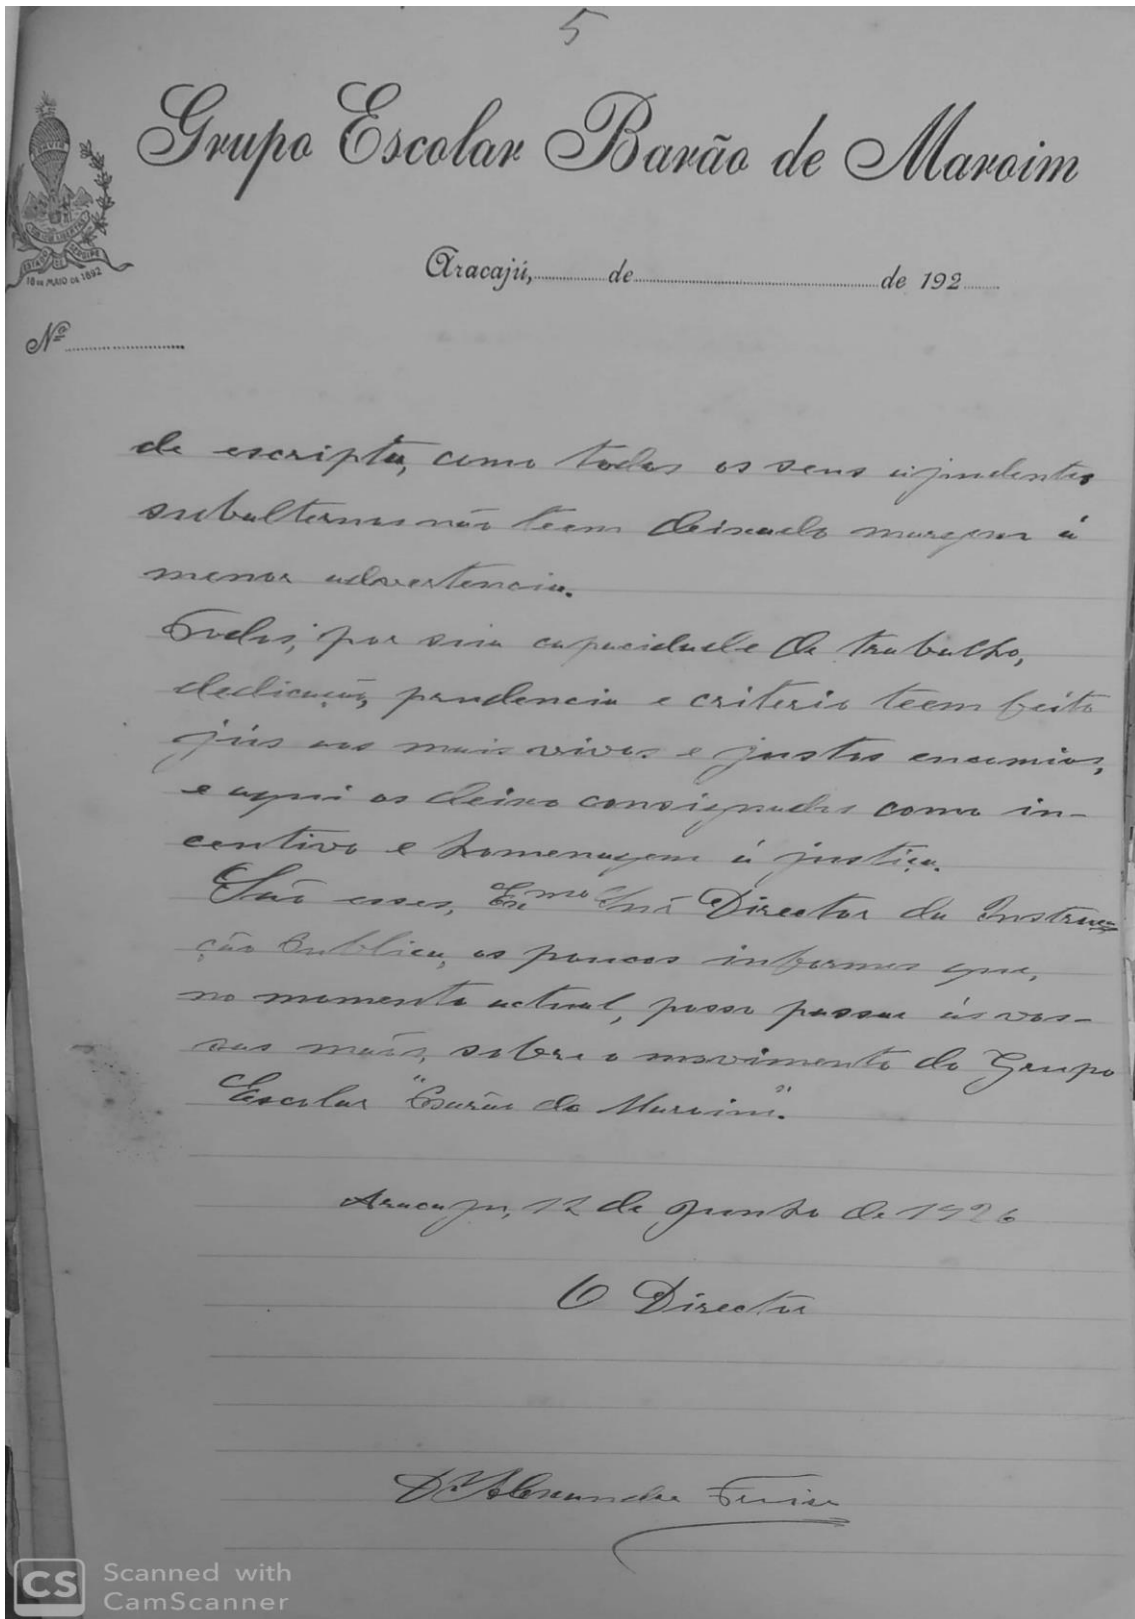 5
Grupo Escolar Barão de Maroim
Aracajú, de de 192
Nº
SUB LEGE LIBERTAS
ESTADO DE SERGIPE
18 DE MAIO DE 1892
de escripta, como todos os seus ajudentes
subalternos não teem deixado margem á
menor advertencia.
Todos, por sua capacidade de trabalho,
dedicação, prudencia e criterio teem feito
jús aos mais vivos e justos encomios,
e aqui os deixo consignados como in-
centivo e homenagem á justiça.
São esses, Exmo Snr Director da Instruc
ção Publica, os poucos informes que,
no momento actual, posso passar ás vos-
sas mãos, sobre o movimento do Grupo
Escolar "Barão de Maroim".
Aracaju, 12 de Junho de 1926
O Director
Dr Alexandre Freire
CS Scanned with
CamScanner